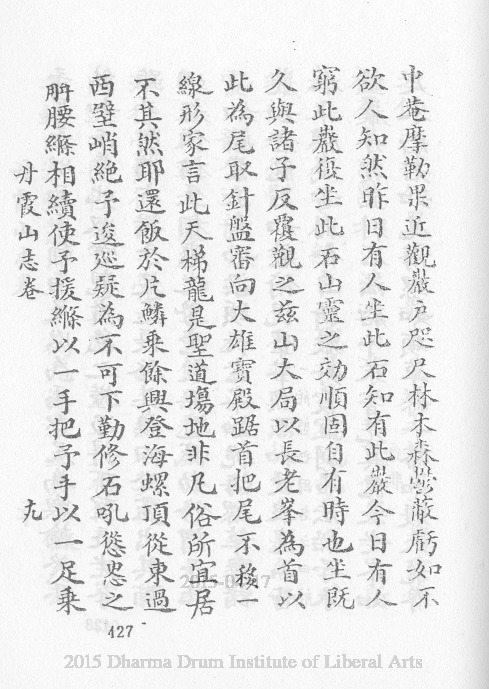 中菴摩勒果近觀巖戶咫尺林木森鬱蔽虧如不
欲人知然昨日有人坐此石知有此巖今日有人
窮此巖復坐此石山靈之効順固自有時也坐既
久與諸子反覆觀之茲山大局以長老峯為首以
此為尾取針盤審向大雄寶殿踞首把尾不移一
線形家言此天梯龍是聖道塲地非凡俗所宜居
不其然耶還飯於片鱗乘餘興登海螺頂從東過
西壁峭絶予逡廵疑為不可下勤修石吼慫恿之
腰縧相續使予援縧以一手把予手以一足乗
丹霞山志卷 九
127
2015-04-17
2015 Dharma Drum Institute of Liberal Arts